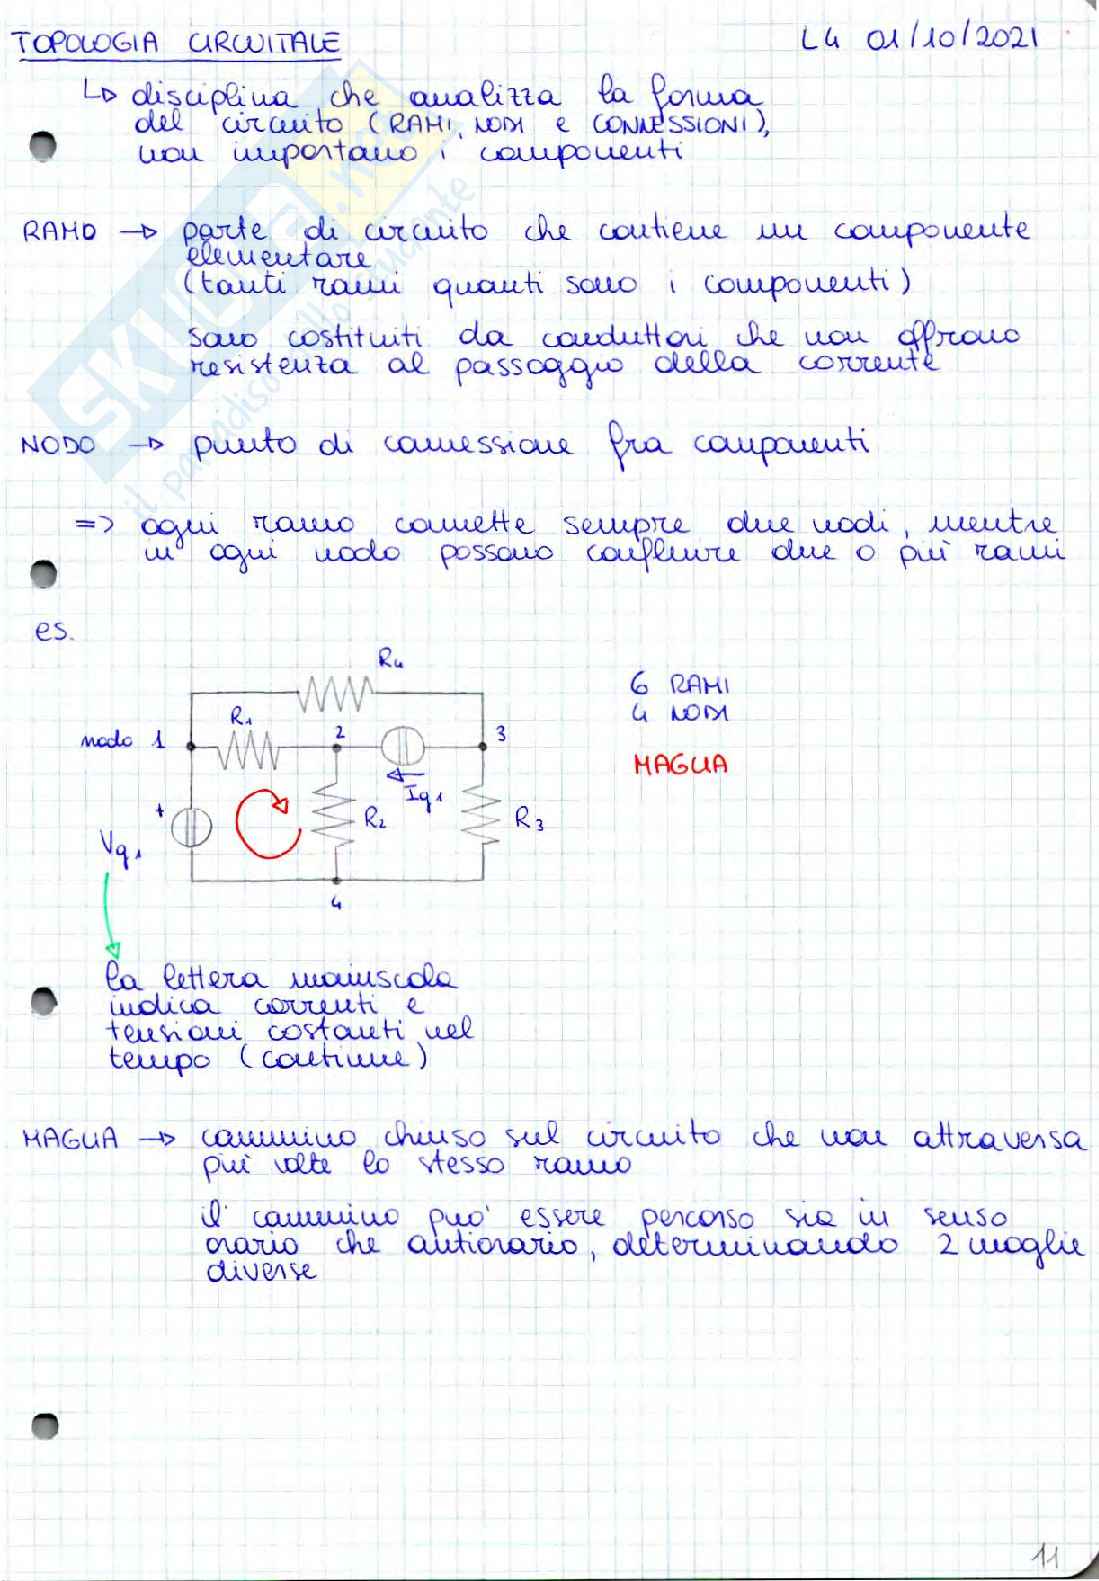 TOPOLOGIA CIRCUITALE
L4 01/10/2021
↳ disciplina che analizza la forma
del circuito (RAMI, NODI e CONNESSIONI),
non importano i componenti
RAMO → parte di circuito che contiene un componente
elementare
(tanti rami quanti sono i componenti)
sono costituiti da conduttori che non offrono
resistenza al passaggio della corrente
NODO → punto di connessione fra componenti
=> ogni ramo connette sempre due nodi, mentre
in ogni nodo possono confluire due o più rami
es.
R4
6 RAMI
4 NODI
R1
nodo 1
2
3
MAGLIA
Ig1
+
R2
R3
Vg1
4
la lettera maiuscola
indica correnti e
tensioni costanti nel
tempo (continue)
MAGLIA → cammino chiuso sul circuito che non attraversa
più volte lo stesso ramo
il cammino può essere percorso sia in senso
orario che antiorario, determinando 2 maglie
diverse
11
SKUOLA.net
il paradiso dello studente